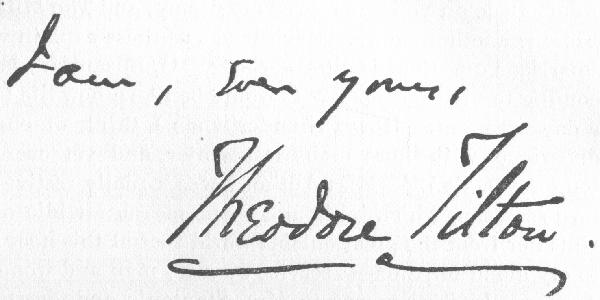 I am, Ever yours,
Theodore Tilton.